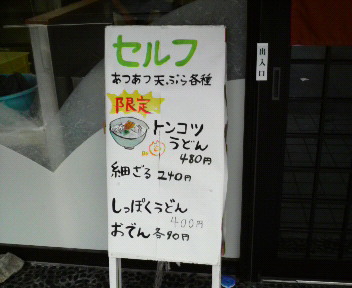 セルフ
あつあつ天ぷら各種
限定
トンコツ
うどん
480円
細ざる 240円
しっぽくうどん
400円
おでん各90円
出入口